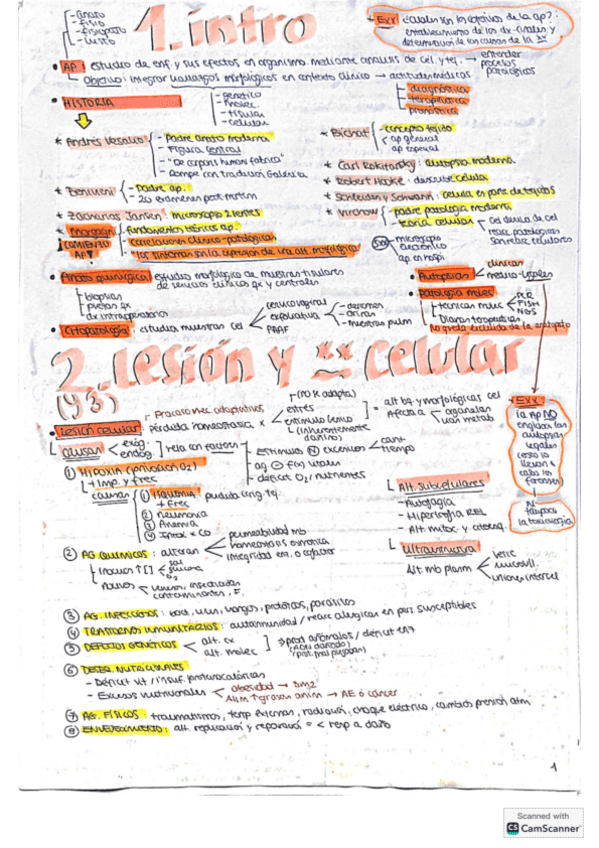 - anato
- fisio
- fisiopato
- histo
1. intro
* Exx: ¿cuáles son los objetivos de la ap?:
establecimiento de los dx finales y
determinación de las causas de la
• AP: estudio de enf. y sus efectos en organismo mediante análisis de cel y tej. → entender procesos patológicos
↳ Objetivo: integrar hallazgos morfológicos en contexto clínico → actitudes médicas
- diagnóstica
- terapéutica
- pronóstica
• HISTORIA
- genético
- molec
- tisular
- celular
* Andrés Vesalio
- Padre anato moderna
- Figura central
- "De corporis humani fabrica"
- Rompe con tradición Galénica
* Benivieni
- Padre ap.
- 20 exámenes post mortem
* Zacharias Jansen: microscopio 2 lentes
* Morgagni
¡COMIENZO AP!
- fundamentos teóricos ap.
- correlaciones clínico-patológicas
- los síntomas son la expresión de una alt. morfológica
* Bichat
- concepto tejido
- ap general
- ap especial
* Carl Rokitansky: autopsia moderna
* Robert Hooke: describe célula
* Schleiden y Schwann: célula en parte de tejidos
* Virchow
- padre patología moderna
- teoría celular
cel deriva de cel
reacc patológicas
son reacc celulares
microscopio
electrónico
ap en hospi
• Anato quirúrgica: estudio morfológico de muestras tisulares
de servicios clínicos qx y centrales
- biopsias
- piezas qx
- dx intraoperatorio
• Citopatología: estudia muestras cel
cervicovaginal
exfoliativa
PAAF
- derrames
- orinas
- muestras pulm
• Autopsias
clínicas
médico-legales
• Patología molec
- técnicas molec
PCR
FISH
NGS
- Dianas terapéuticas
No queda excluida de la anatopato
2. Lesión y xx celular
(y 3)
Fracaso mec adaptativos
• Lesión celular: pérdida homeostasia x
(no se adapta)
estrés
estímulo lesivo
(inherentemente dañino)
= alt bq y morfológicas cel
Afecta a
organelas
vías metab
causas
exóg.
endóg.
rela con factores
- Estímulos N excesivos
cant
tiempo
- déficit O2/nutrientes
① HIPOXIA (privación O2)
+ imp. y frec
causas
① Isquemia
+ frec
② Neumonía
③ Anemia
④ Intox x CO
Alt. subcelulares
- Autofagia
- Hipertrofia REL
- Alt mitoc. y citoesq.
Ultraestructura
Alt. mb plasm
② AG QUÍMICOS: alteran
permeabilidad mb
homeostasis osmótica
integridad enz. o cofactor
- Inocuos ↑[ ]
sal
glucosa
O2
- Nocivos
veneno, insecticidas
Exx:
la AP NO
engloba las
autopsias
legales
(esto lo
llevan a
cabo los
forenses)
Ni
tampoco
la toxicología
③ AG. INFECCIOSOS: bact, virus, hongos, protozoos, parásitos
④ TRASTORNOS INMUNITARIOS: autoinmunidad / reacc alérgicas en pers. susceptibles
⑤ DEFECTOS GENÉTICOS
alt. cx
alt. molec
prod anómalos / déficit enz
(ADN dañado)
(prot. mal plegadas)
⑥ DESEQ. NUTRICIONALES
- Déficit vit / insuf. proteocalóricas
- Excesos nutricionales
obesidad → DM2
Alim ↑ grasas anim → AE o cáncer
⑦ AG. FÍSICOS: traumatismos, temp extremas, radiación, choque eléctrico, cambios presión atm
⑧ ENVEJECIMIENTO: alt. replicación y reparación = < resp a daño
1
Scanned with
CS CamScanner